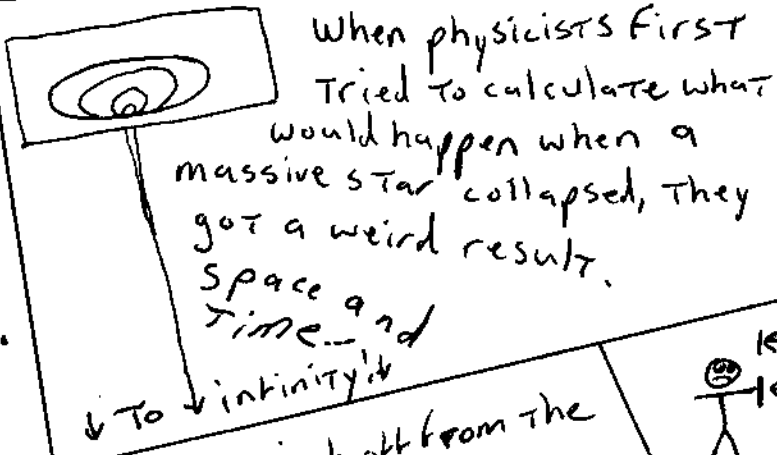 When physicists first
tried to calculate what
would happen when a
massive star collapsed, they
got a weird result.
space and
time...
↓ to ↓ infinity! ↓
from the